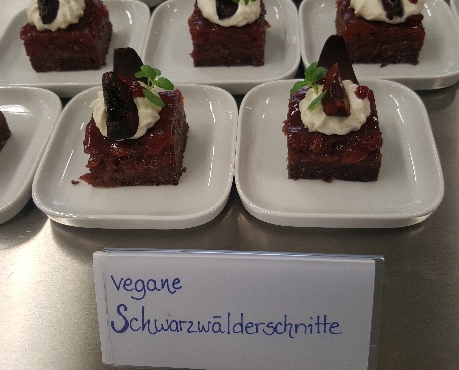 vegane
Schwarzwälderschnitte